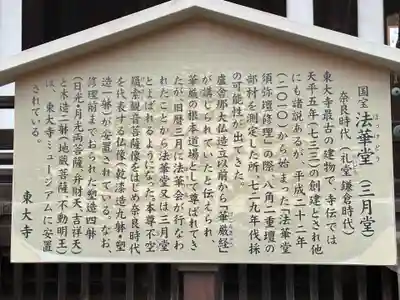 国宝 法華堂(三月堂)
ほっけどう
奈良時代(礼堂 鎌倉時代)
東大寺最古の建物で、寺伝では
天平五年(七三三)の創建とされ他
にも諸説あるが、平成二十二年
(二〇一〇)から始まった「法華堂
須弥壇修理」の際、八角二重壇の
部材を測定した所、七二九年伐採
の可能性が出てきた。
盧舎那大仏造立以前から『華厳経』
が講じられていたと伝えられ、
華厳の根本道場として尊ばれてき
たが、旧暦三月に法華会が行なわ
れたことから法華堂又は三月堂
とよばれるようになった。本尊不空
羂索観音菩薩像をはじめ奈良時代
を代表する仏像(乾漆造九躰・塑
造一躰)が安置されている。なお、
修理前までおられた塑造四躰
(日光・月光両菩薩、弁財天、吉祥天)
と木造二躰(地蔵菩薩、不動明王)
は、東大寺ミュージアムに安置
されている。
東大寺